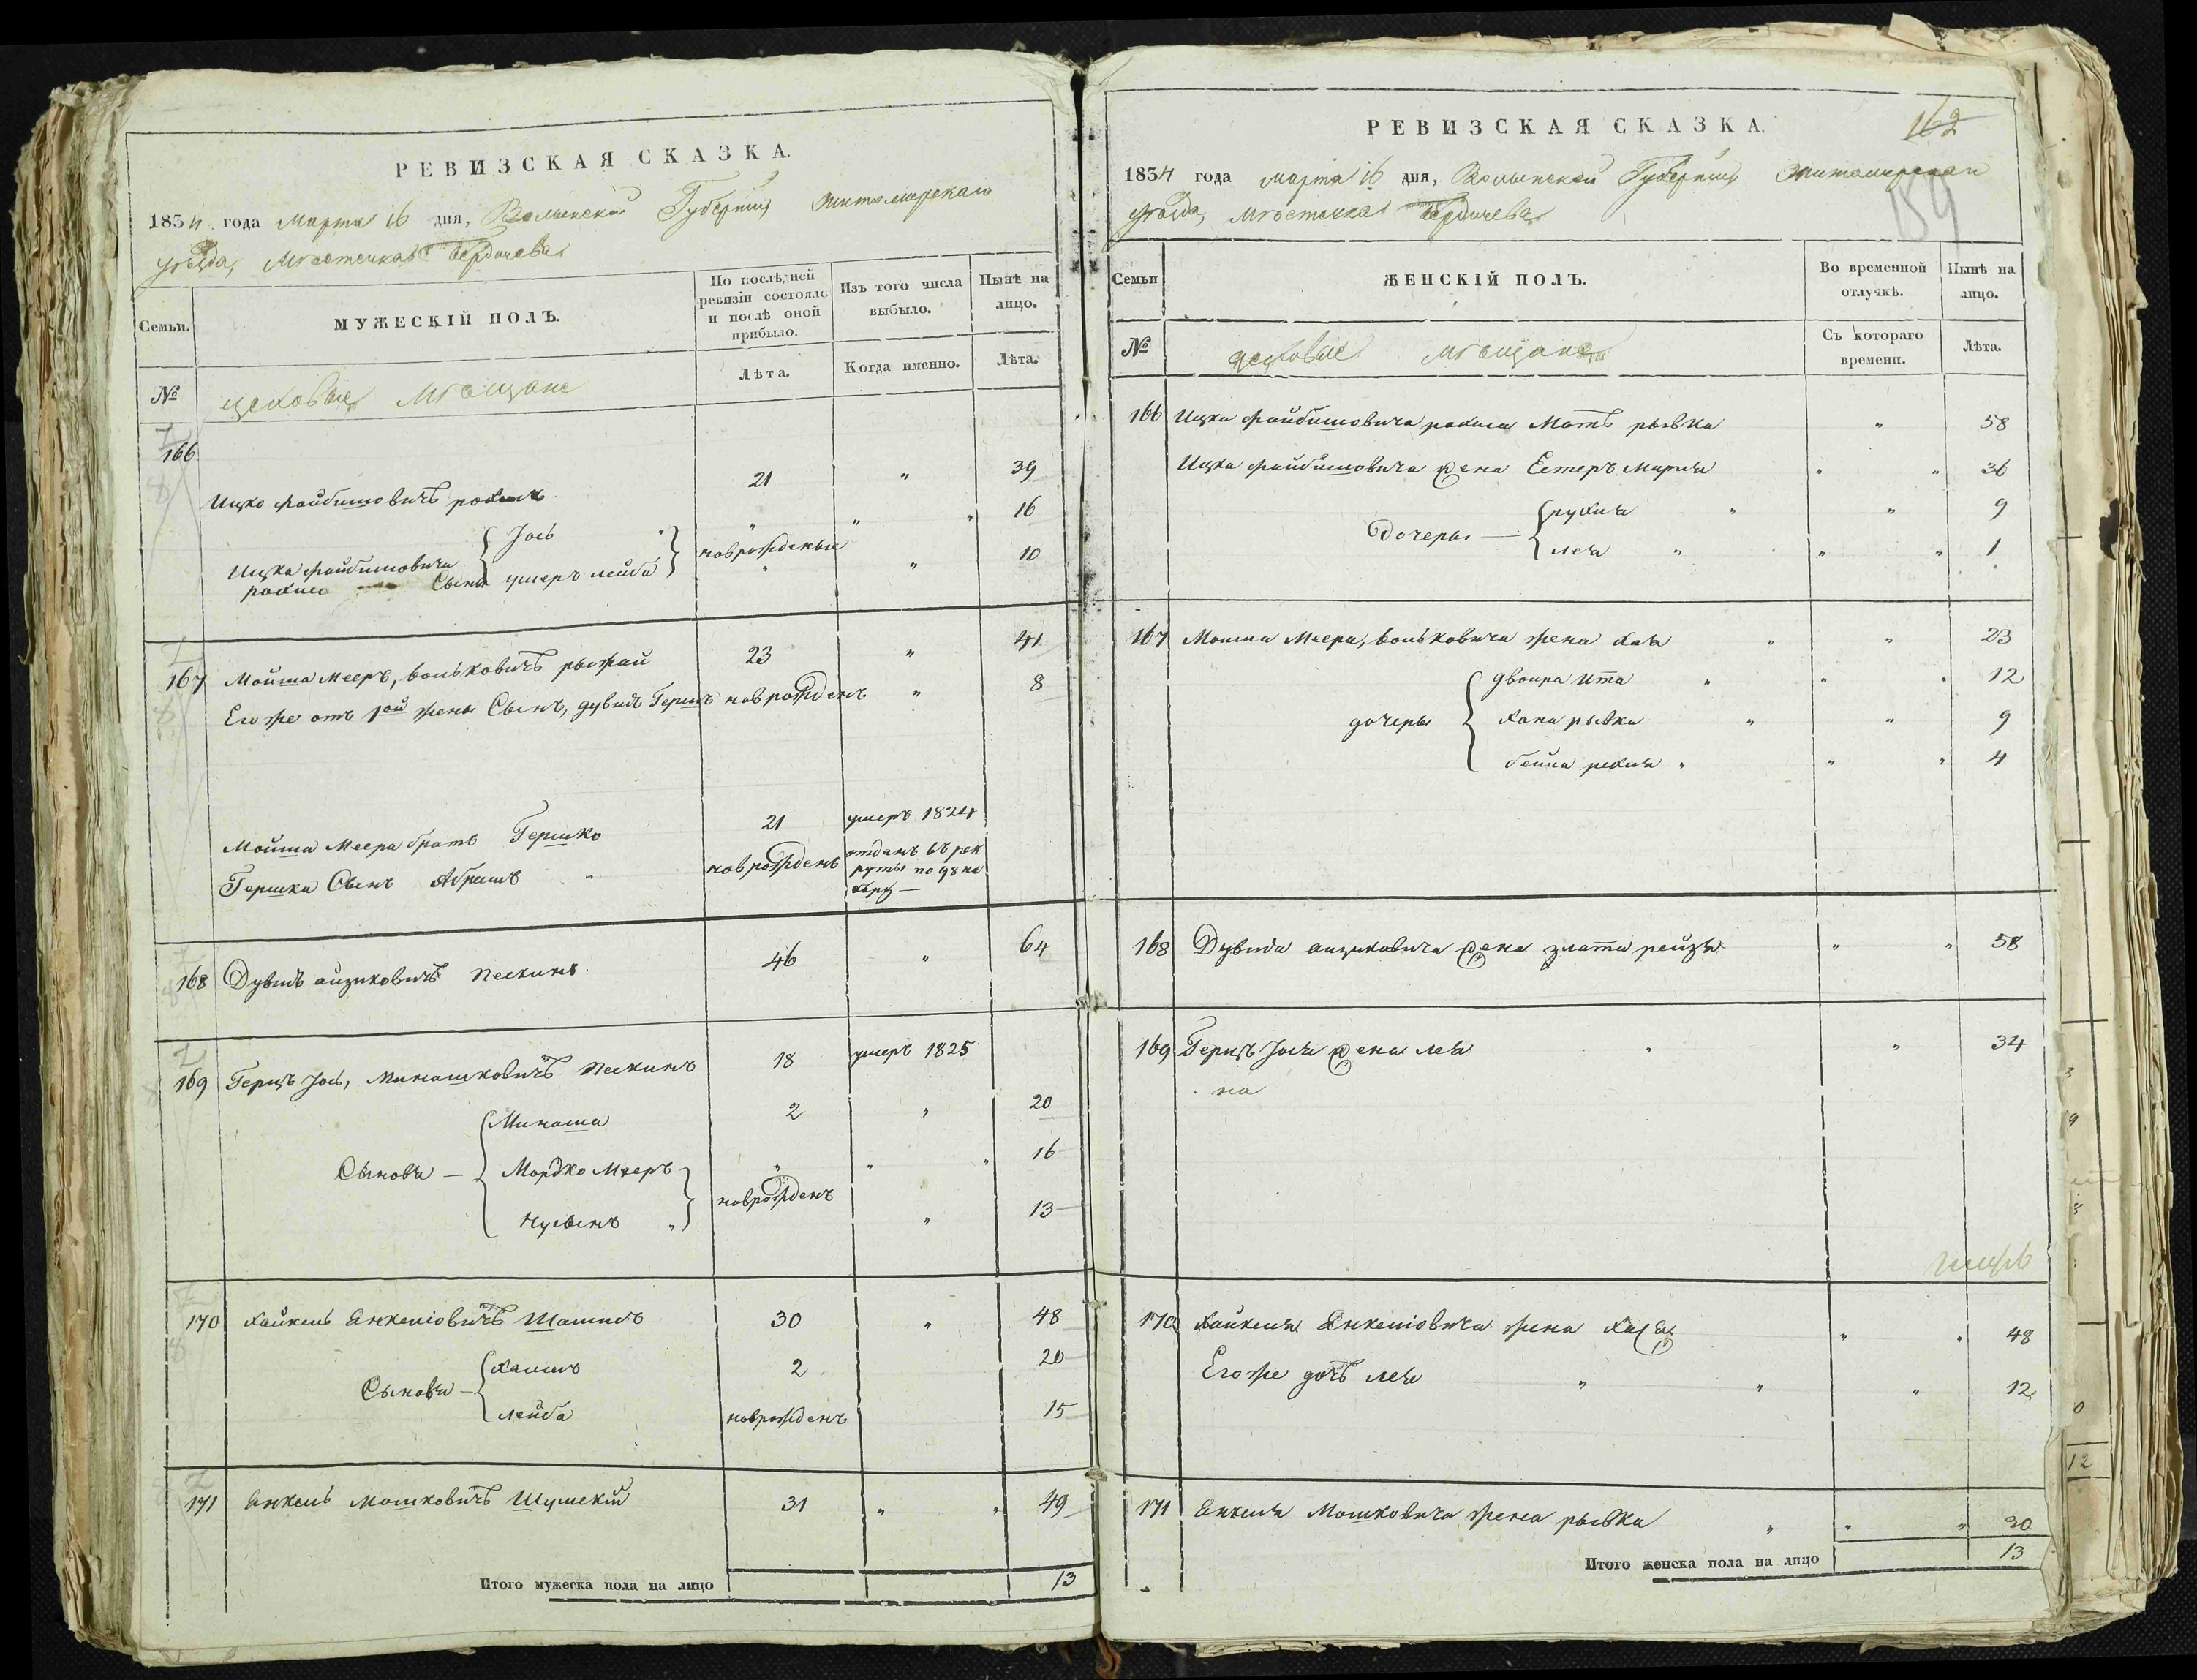 РЕВИЗСКАЯ СКАЗКА.
1834 года Марта 16 дня, Волынской Губерніи Житомирскаго
уѣзда, Мѣстечка Бердичева
Семьи.
МУЖЕСКІЙ ПОЛЪ.
По послѣдней ревизіи состояло и послѣ оной прибыло.
Изъ того числа выбыло.
Нынѣ на лицо.
№
цеховые мѣщане
Лѣта.
Когда именно.
Лѣта.
166
Ицко Файбишовичъ 21 " 39
Ицка Файбишовича Сыны
Іось " " " 16
умеръ лейба новрожденые " 10
167 Мойша Мееръ, вольковичъ рыжай 23 " 41
Его же отъ 1ой жены Сынъ, дувидъ Гершъ новрожденъ " 8
Мойша Меера братъ Гершко 21 умеръ 1824
Гершка Сынъ Абрамъ " новрожденъ отданъ въ рек
руты по 98 на
бору
168 Дувидъ айзиковичъ Пескинъ 46 " 64
169 Герцъ Іось, Миношковичъ Пескинъ 18 умеръ 1825
Сыновья —
Миноша 2 " 20
Мордко Мееръ " " " 16
Нусынъ " новрожденъ " 13
170 Хайкель Енкеліовичъ 30 " 48
Сыновья —
Хаимъ 2 20
лейба новрожденъ 15
171 Енкель Мошковичъ Шумскій 31 " " 49
Итого мужеска пола на лицо 13
РЕВИЗСКАЯ СКАЗКА.
162
159
1834 года Марта 16 дня, Волынской Губерніи Житомирскаго
уѣзда, Мѣстечка Бердичева
Семьи
ЖЕНСКІЙ ПОЛЪ.
Во временной отлучкѣ.
Нынѣ на лицо.
№
цеховые мѣщане
Съ котораго времени.
Лѣта.
166 Ицка Файбишовича Мать рывка " 58
Ицка Файбишовича жена Естеръ " " 36
Дочеры —
рухля " " 9
лея " " " 1
167 Мошка Меера, вольковича жена хая " " 23
дочеры
двойра Ита " " " 12
хана рывка " " 9
бейла рехля " " " 4
168 Дувида айзиковича жена злата рейзя " " 58
169 Герцъ Іося жена лея " " 34
на
170 Хайкеля Енкеліовича жена " " 48
Его же дочъ лея " " " 12
171 Енкеля Мошковича жена рывка " " " 30
Итого женска пола на лицо 13